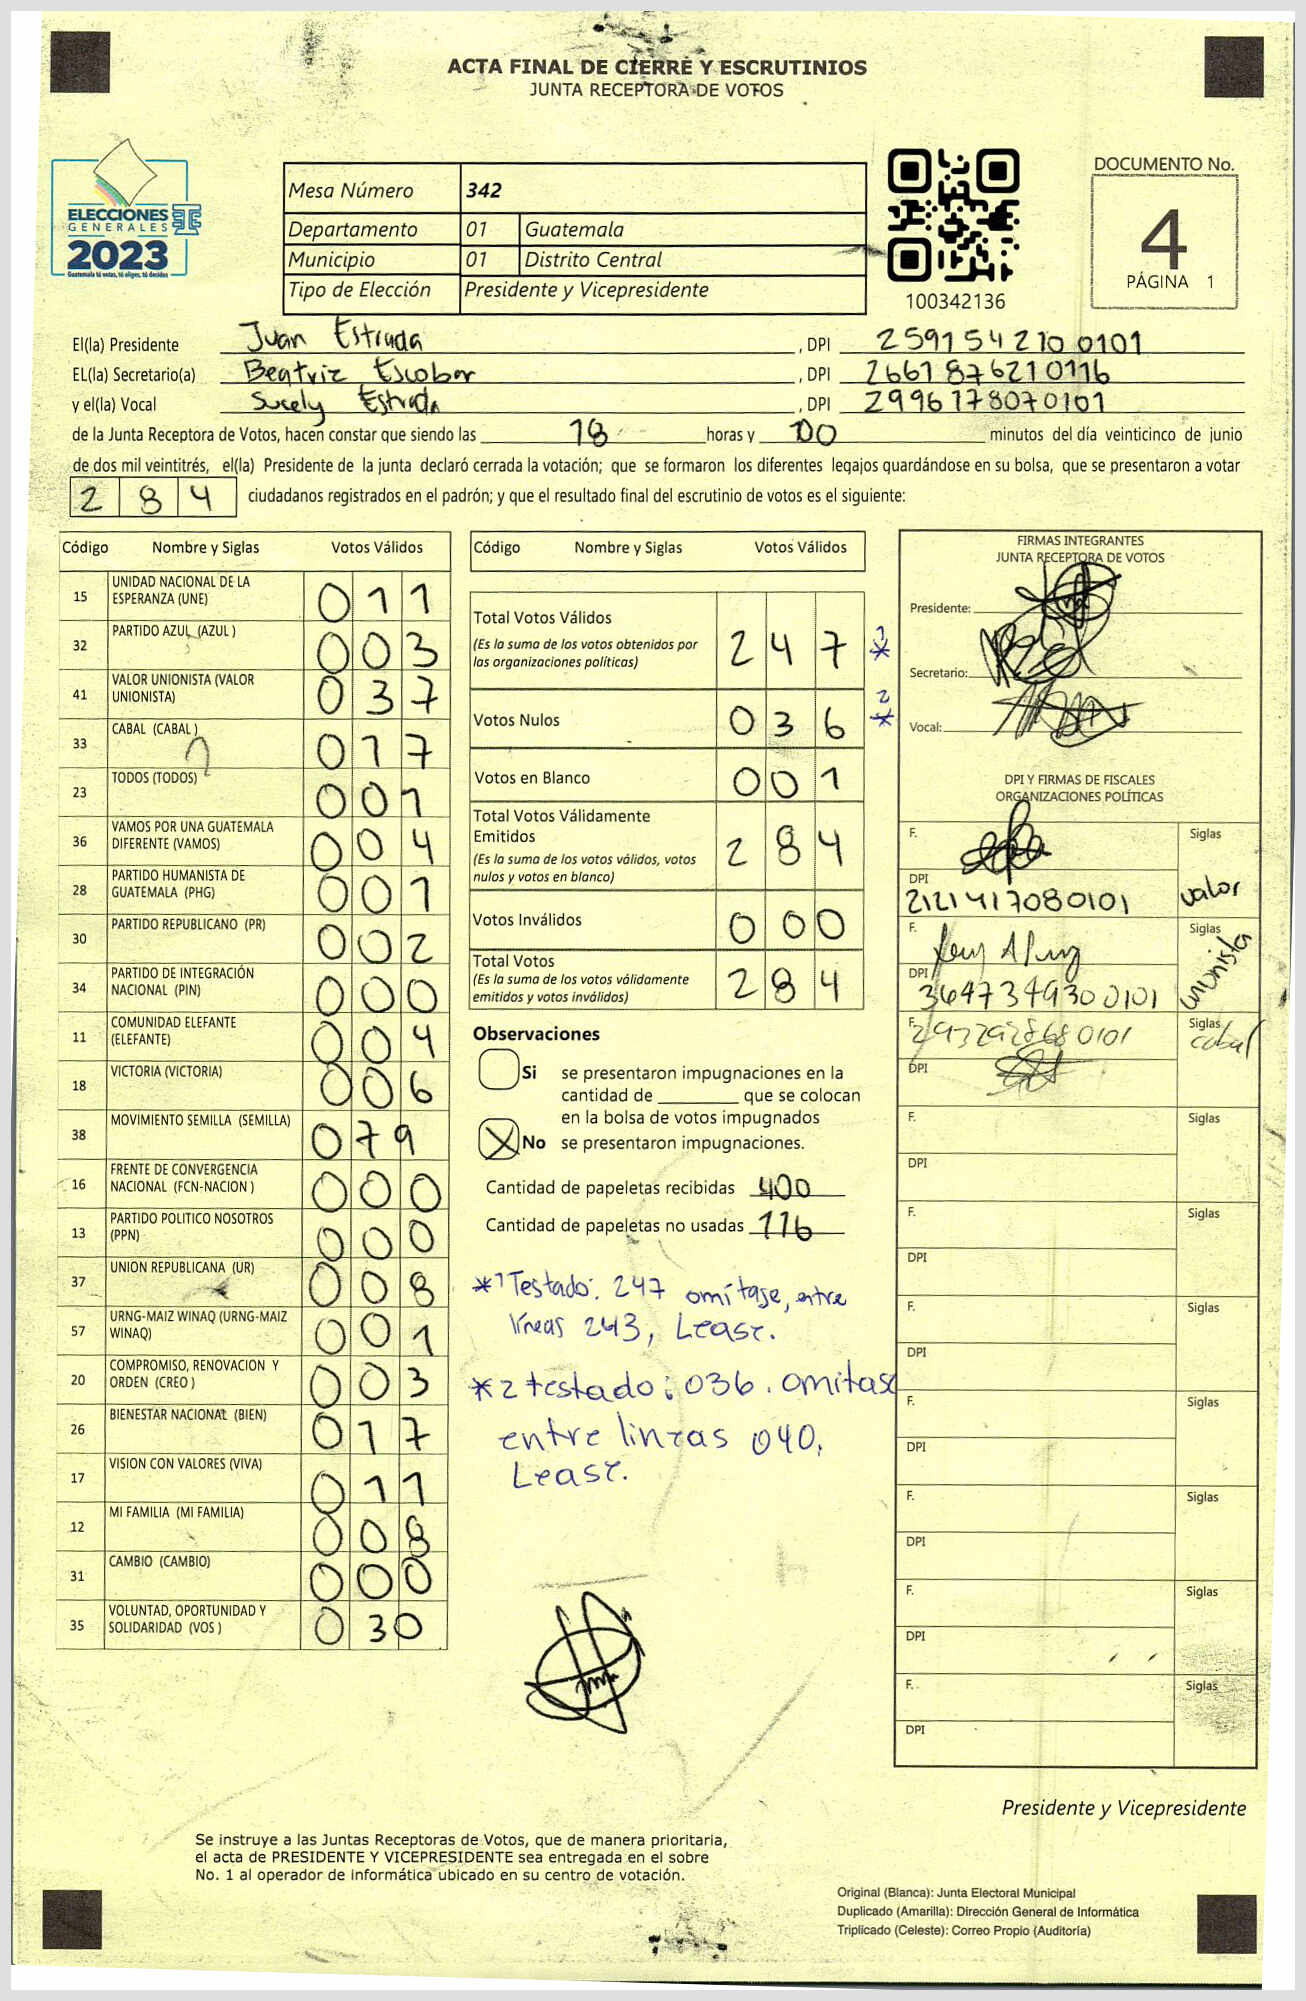 ACTA FINAL DE CIERRE Y ESCRUTINIOS
JUNTA RECEPTORA DE VOTOS
ELECCIONES
GENERALES
2023
Guatemala tú votas, tú eliges, tú decides
Mesa Número 342
Departamento 01 Guatemala
Municipio 01 Distrito Central
Tipo de Elección Presidente y Vicepresidente
100342136
DOCUMENTO No.
4
PÁGINA 1
El(la) Presidente Juan Estrada , DPI 2591542100101
EL(la) Secretario(a) Beatriz Escobar , DPI 2661876210116
y el(la) Vocal Sucely Estrada , DPI 2996178070101
de la Junta Receptora de Votos, hacen constar que siendo las 18 horas y 00 minutos del día veinticinco de junio
de dos mil veintitrés, el(la) Presidente de la junta declaró cerrada la votación; que se formaron los diferentes legajos guardándose en su bolsa, que se presentaron a votar
2 8 4 ciudadanos registrados en el padrón; y que el resultado final del escrutinio de votos es el siguiente:
Código Nombre y Siglas Votos Válidos
15 UNIDAD NACIONAL DE LA ESPERANZA (UNE) 011
32 PARTIDO AZUL (AZUL ) 003
41 VALOR UNIONISTA (VALOR UNIONISTA) 037
33 CABAL (CABAL ) 017
23 TODOS (TODOS) 001
36 VAMOS POR UNA GUATEMALA DIFERENTE (VAMOS) 004
28 PARTIDO HUMANISTA DE GUATEMALA (PHG) 001
30 PARTIDO REPUBLICANO (PR) 002
34 PARTIDO DE INTEGRACIÓN NACIONAL (PIN) 000
11 COMUNIDAD ELEFANTE (ELEFANTE) 004
18 VICTORIA (VICTORIA) 006
38 MOVIMIENTO SEMILLA (SEMILLA) 079
16 FRENTE DE CONVERGENCIA NACIONAL (FCN-NACION ) 000
13 PARTIDO POLITICO NOSOTROS (PPN) 000
37 UNION REPUBLICANA (UR) 008
57 URNG-MAIZ WINAQ (URNG-MAIZ WINAQ) 001
20 COMPROMISO, RENOVACION Y ORDEN (CREO ) 003
26 BIENESTAR NACIONAL (BIEN) 017
17 VISION CON VALORES (VIVA) 011
12 MI FAMILIA (MI FAMILIA) 008
31 CAMBIO (CAMBIO) 000
35 VOLUNTAD, OPORTUNIDAD Y SOLIDARIDAD (VOS ) 030
Código Nombre y Siglas Votos Válidos
Total Votos Válidos 247 *1
(Es la suma de los votos obtenidos por
las organizaciones políticas)
Votos Nulos 036 *2
Votos en Blanco 001
Total Votos Válidamente
Emitidos 284
(Es la suma de los votos válidos, votos
nulos y votos en blanco)
Votos Inválidos 000
Total Votos 284
(Es la suma de los votos válidamente
emitidos y votos inválidos)
Observaciones
Si se presentaron impugnaciones en la
cantidad de ________ que se colocan
en la bolsa de votos impugnados
X No se presentaron impugnaciones.
Cantidad de papeletas recibidas 400
Cantidad de papeletas no usadas 116
*1 Testado: 247 omítase, entre
líneas 243, Lease.
*2 testado: 036. omitase
entre lineas 040,
Lease.
FIRMAS INTEGRANTES
JUNTA RECEPTORA DE VOTOS
Presidente:
Secretario:
Vocal:
DPI Y FIRMAS DE FISCALES
ORGANIZACIONES POLÍTICAS
F. Siglas
DPI
2121417080101 valor
F. Siglas
unionista
DPI
3647349300101
F. Siglas
2932928680101 cabal
DPI
F. Siglas
DPI
F. Siglas
DPI
F. Siglas
DPI
F. Siglas
DPI
F. Siglas
DPI
F. Siglas
DPI
F. Siglas
DPI
Presidente y Vicepresidente
Se instruye a las Juntas Receptoras de Votos, que de manera prioritaria,
el acta de PRESIDENTE Y VICEPRESIDENTE sea entregada en el sobre
No. 1 al operador de informática ubicado en su centro de votación.
Original (Blanca): Junta Electoral Municipal
Duplicado (Amarilla): Dirección General de Informática
Triplicado (Celeste): Correo Propio (Auditoría)